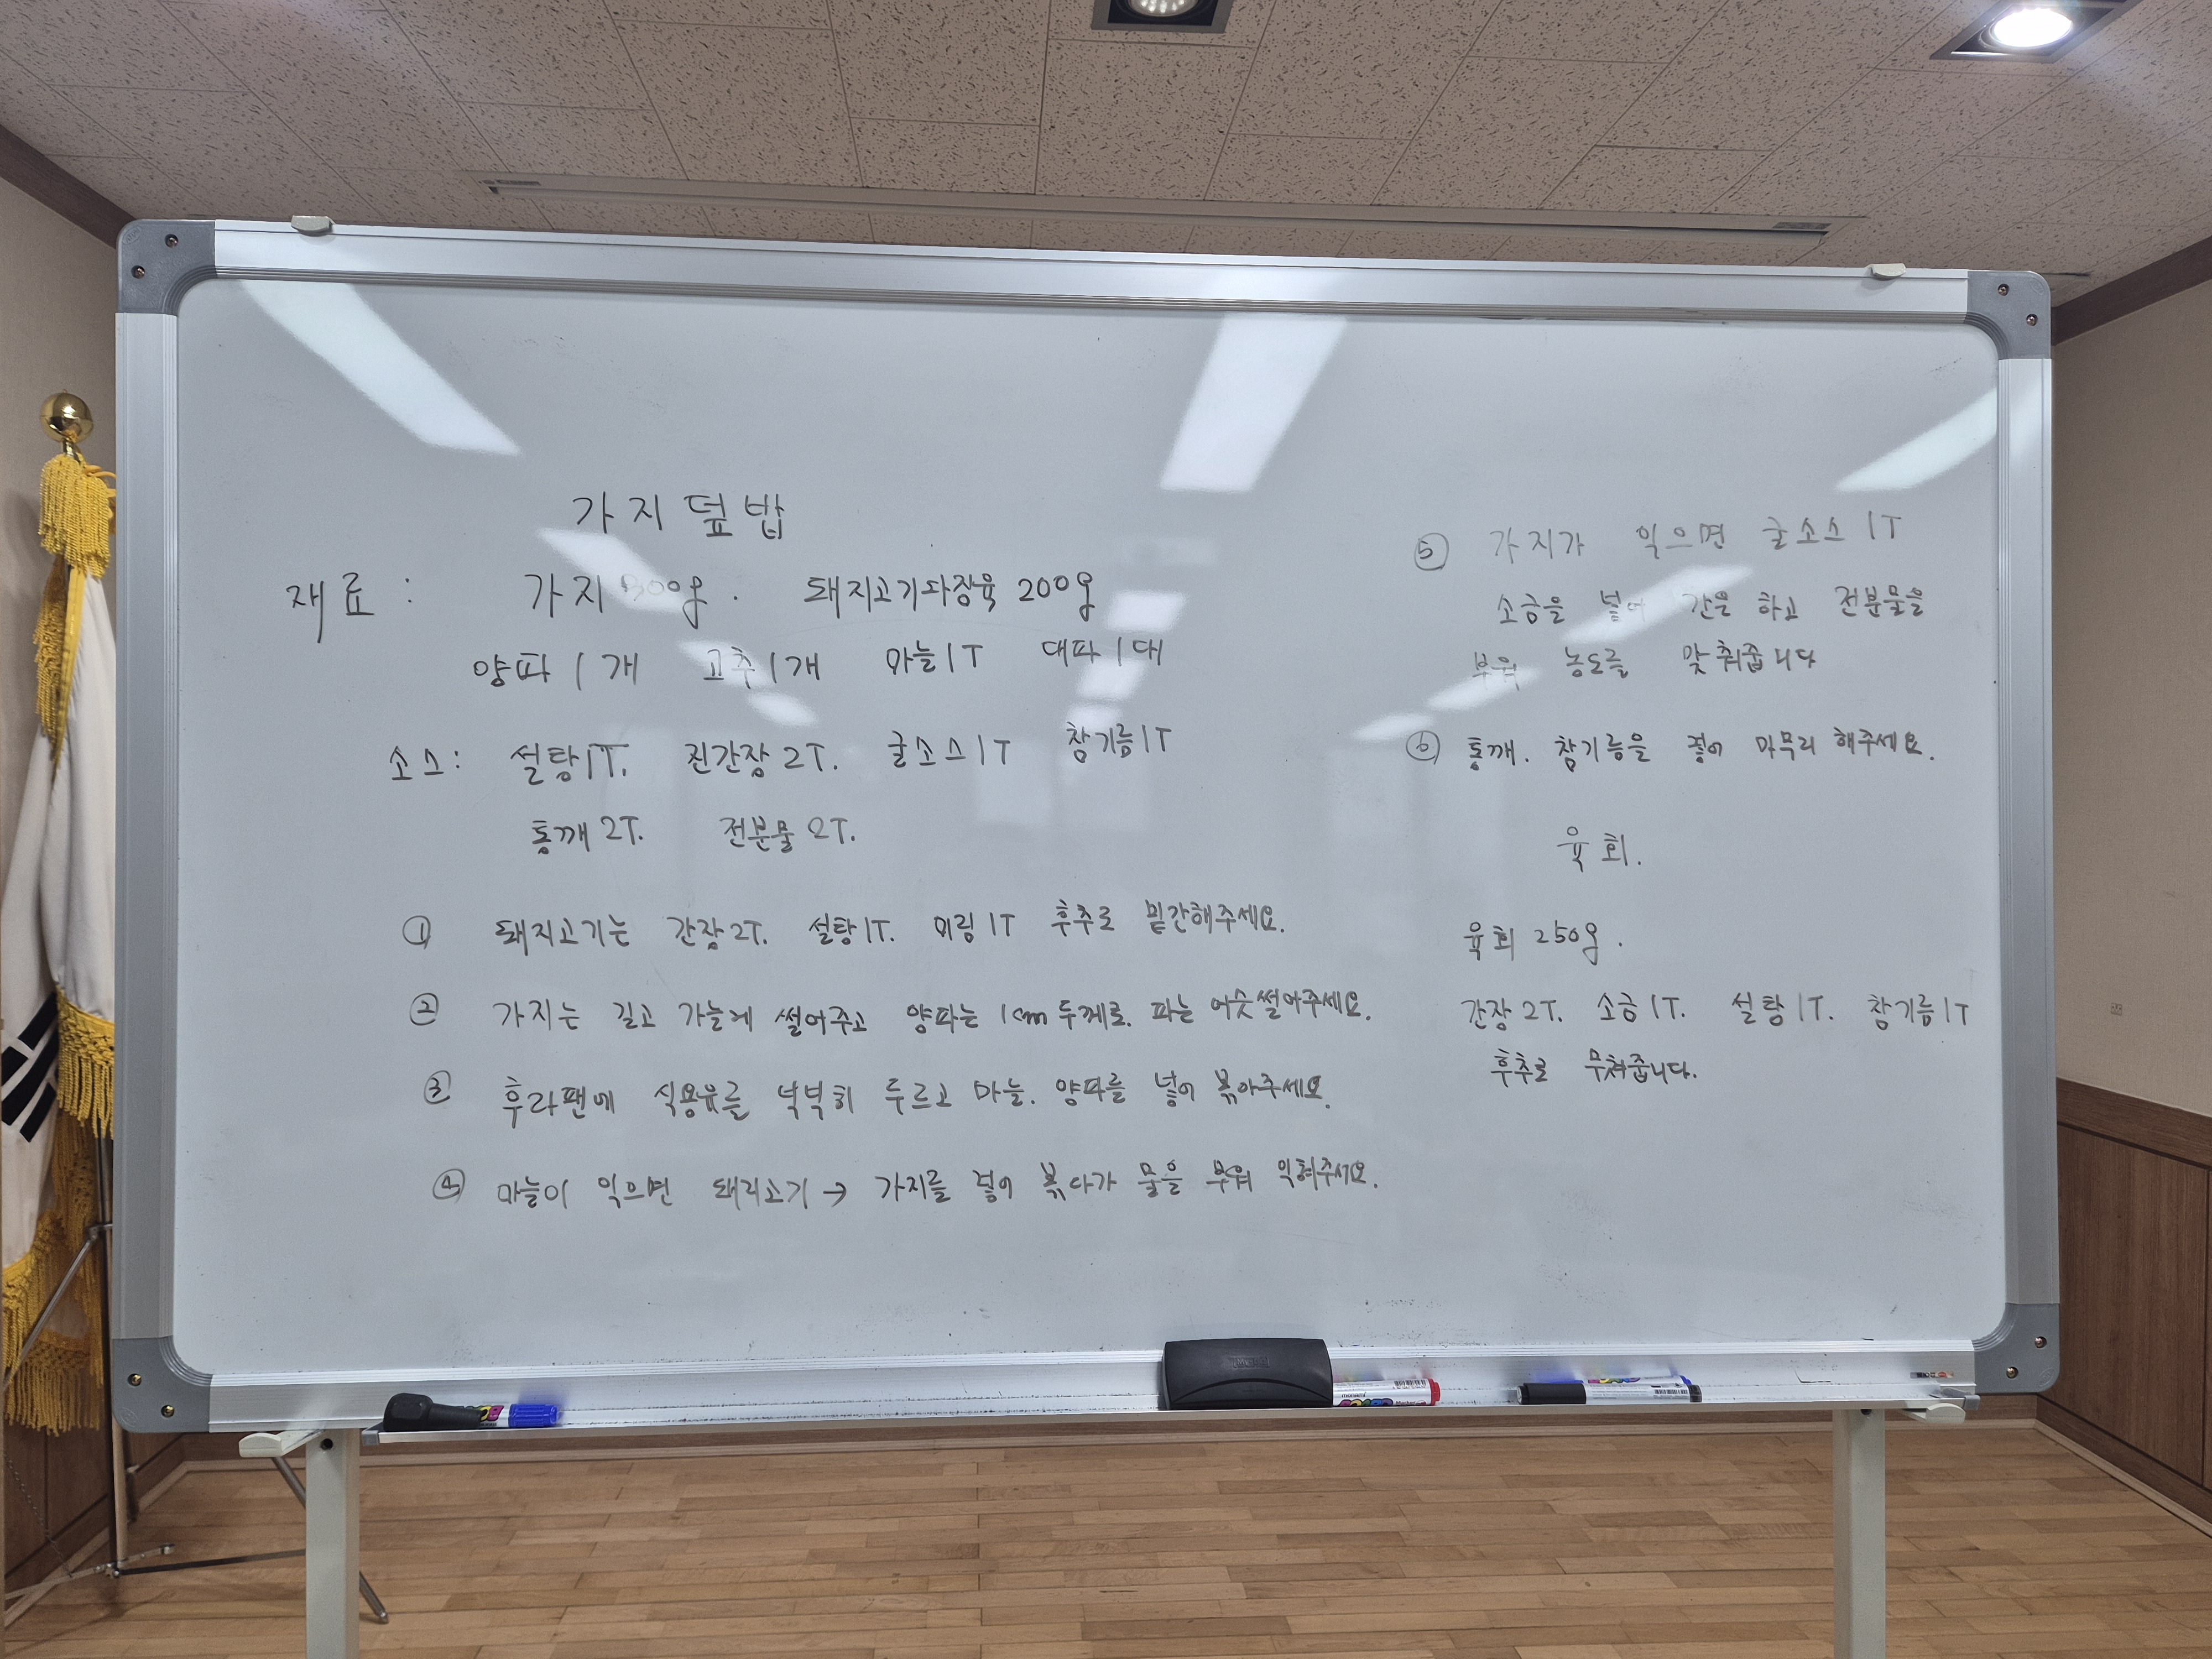 가지덮밥
재료 : 가지 300g. 돼지고기다짐육 200g
양파 1개 고추 1개 마늘 1T 대파 1대
소스: 설탕 1T. 진간장 2T. 굴소스 1T 참기름 1T
통깨 2T. 전분물 2T.
① 돼지고기는 간장 2T. 설탕 1T. 미림 1T 후추로 밑간해주세요.
② 가지는 길고 가늘게 썰어주고 양파는 1cm 두께로. 파는 어슷썰어주세요.
③ 후라팬에 식용유를 넉넉히 두르고 마늘. 양파를 넣어 볶아주세요.
④ 마늘이 익으면 돼지고기 → 가지를 넣어 볶다가 물을 부워 익혀주세요.
⑤ 가지가 익으면 굴소스 1T
소금을 넣어 간을 하고 전분물을
부워 농도를 맞춰줍니다
⑥ 통깨. 참기름을 넣어 마무리 해주세요.
육회.
육회 250g.
간장 2T. 소금 1T. 설탕 1T. 참기름 1T
후추로 무쳐줍니다.